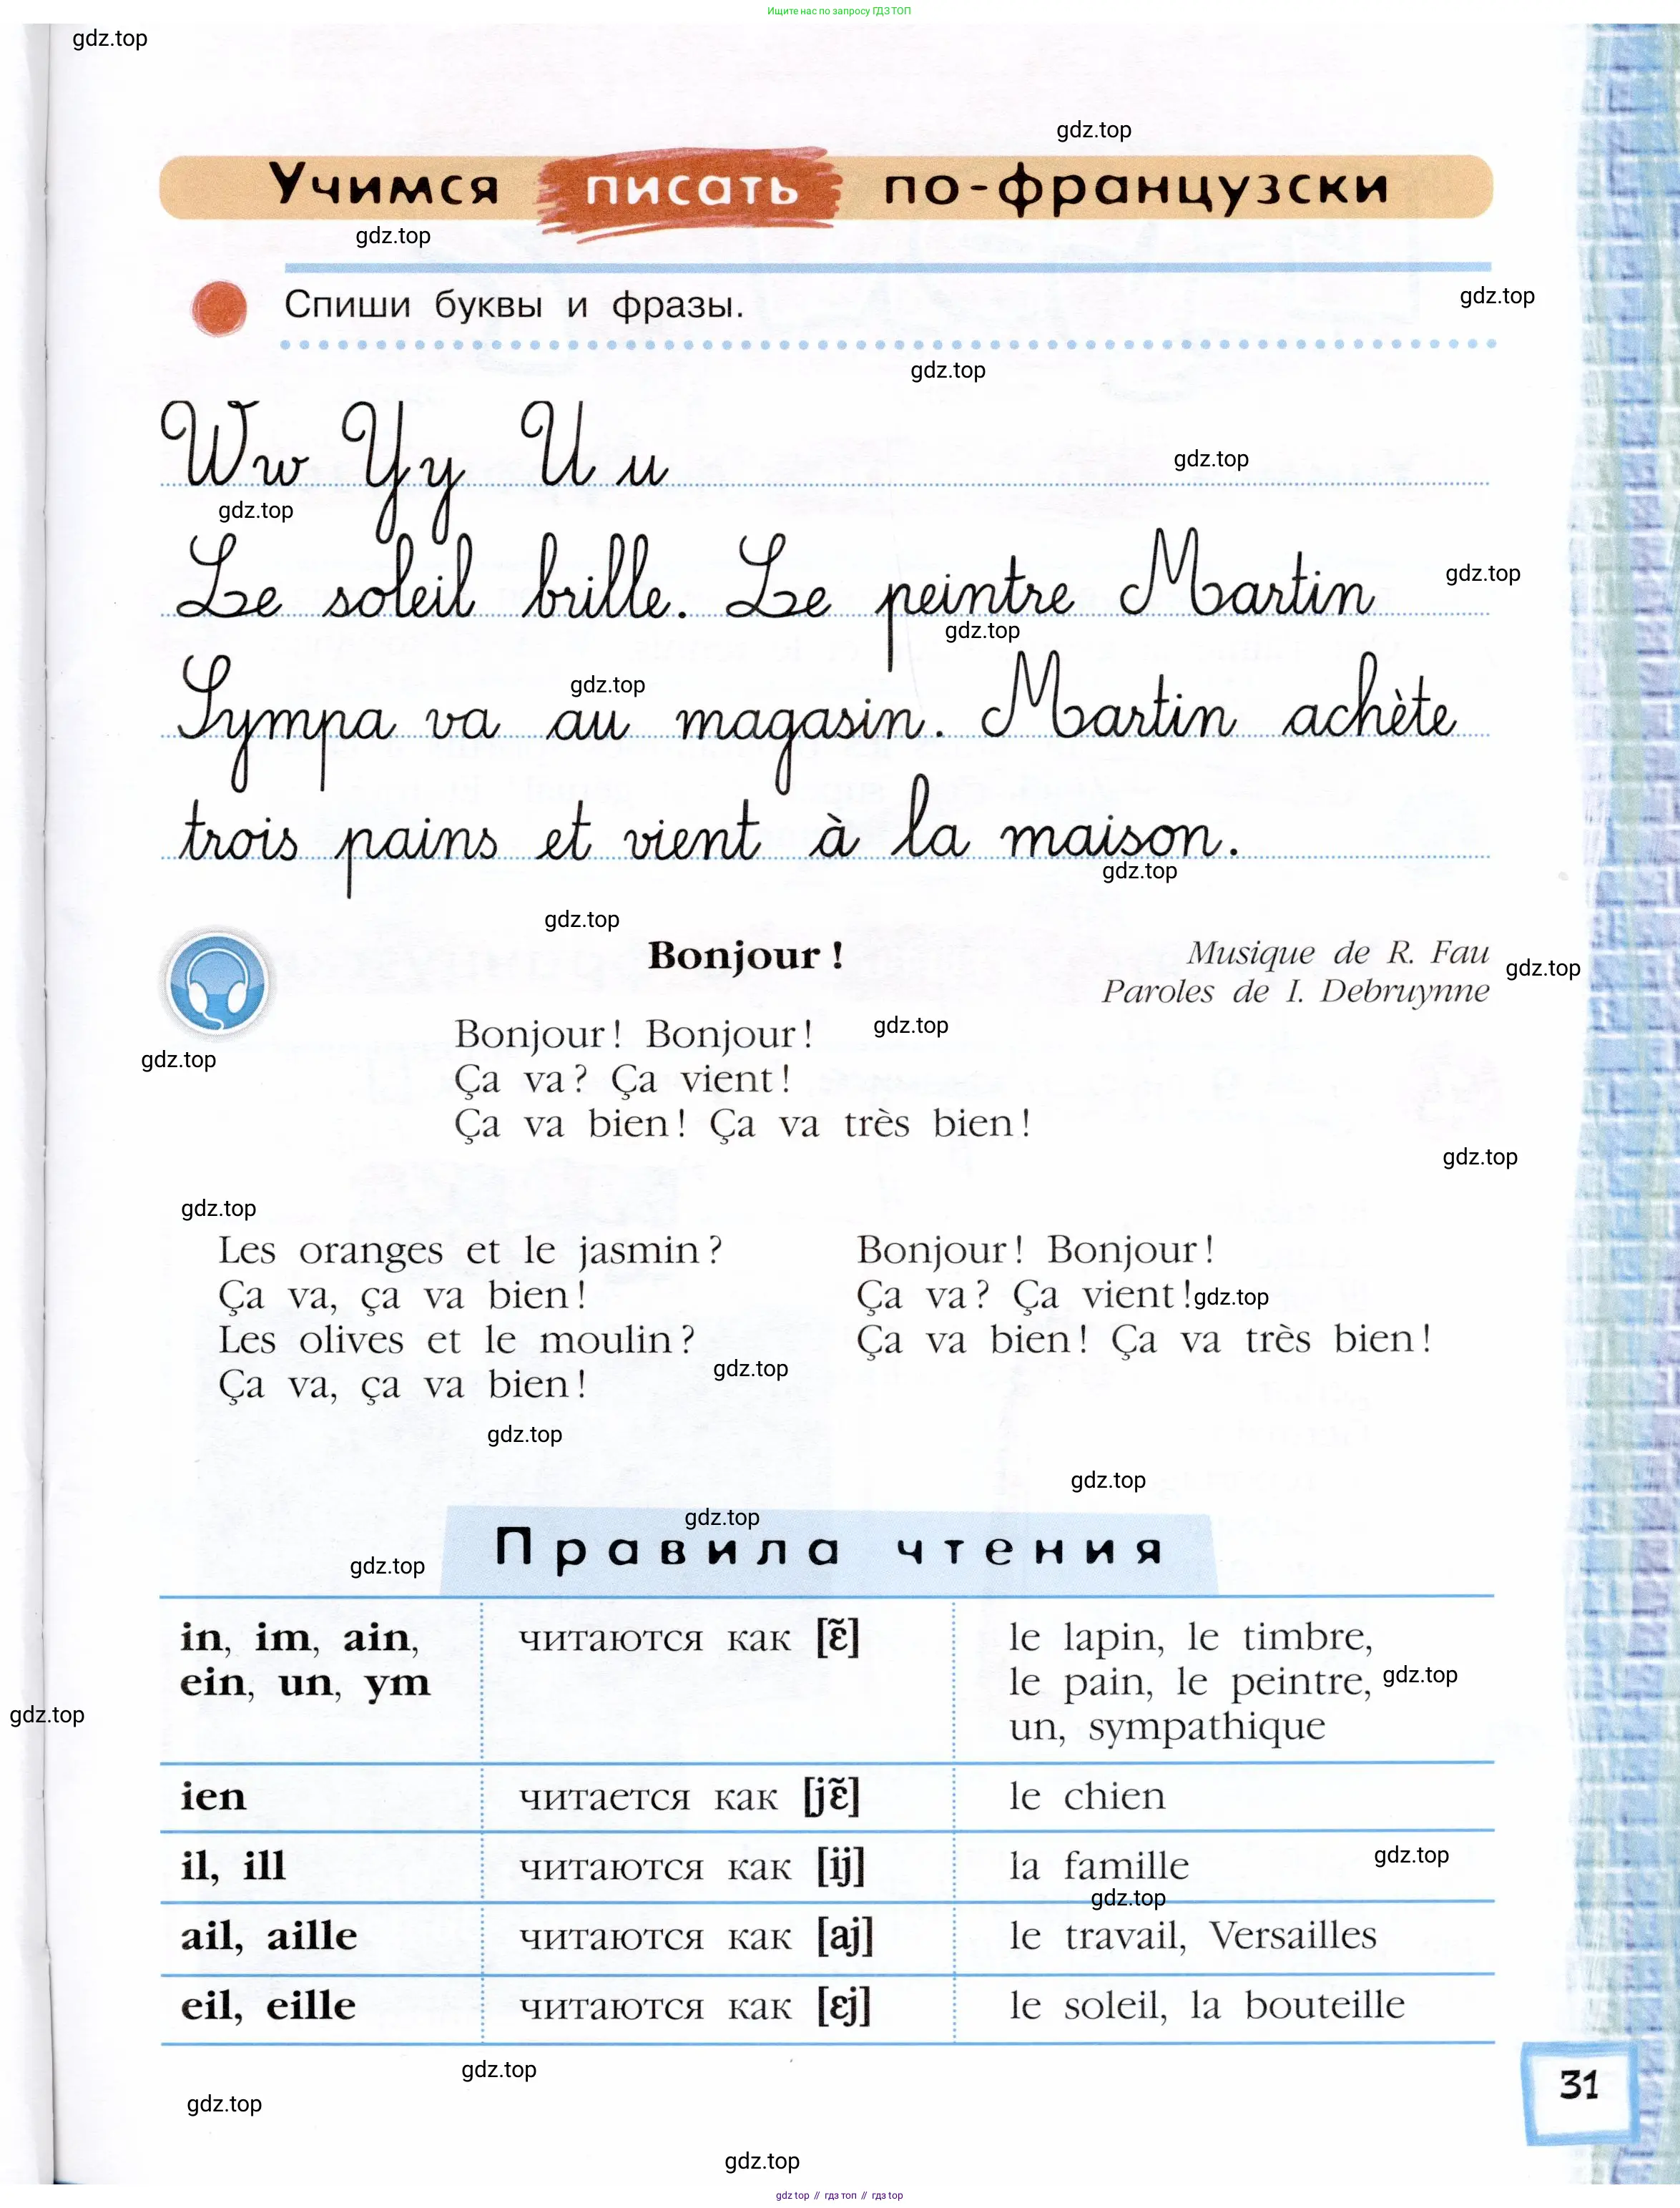 Ищите нас по запросу ГДЗ ТОП
gdz.top
gdz.top
Учимся писать по-французски
gdz.top
gdz.top
Спиши буквы и фразы.
gdz.top
Ww Yy Uu
gdz.top
gdz.top
Le soleil brille. Le peintre Martin
gdz.top
gdz.top
gdz.top
Sympa va au magasin. Martin achète
trois pains et vient à la maison.
gdz.top
gdz.top
Bonjour !
Musique de R. Fau
gdz.top
Paroles de I. Debruynne
Bonjour ! Bonjour !
gdz.top
gdz.top
Ça va ? Ça vient !
Ça va bien ! Ça va très bien !
gdz.top
gdz.top
Les oranges et le jasmin ?
Ça va, ça va bien !
Les olives et le moulin ?
Ça va, ça va bien !
Bonjour ! Bonjour !
Ça va ? Ça vient !
gdz.top
Ça va bien ! Ça va très bien !
gdz.top
gdz.top
gdz.top
gdz.top
Правила чтения
gdz.top
in, im, ain, читаются как [ɛ̃] le lapin, le timbre,
ein, un, ym le pain, le peintre,
gdz.top
gdz.top
un, sympathique
ien читается как [jɛ̃] le chien
il, ill читаются как [ij] la famille
gdz.top
gdz.top
ail, aille читаются как [aj] le travail, Versailles
eil, eille читаются как [ɛj] le soleil, la bouteille
gdz.top
31
gdz.top
gdz.top
gdz top // гдз топ // гдз top